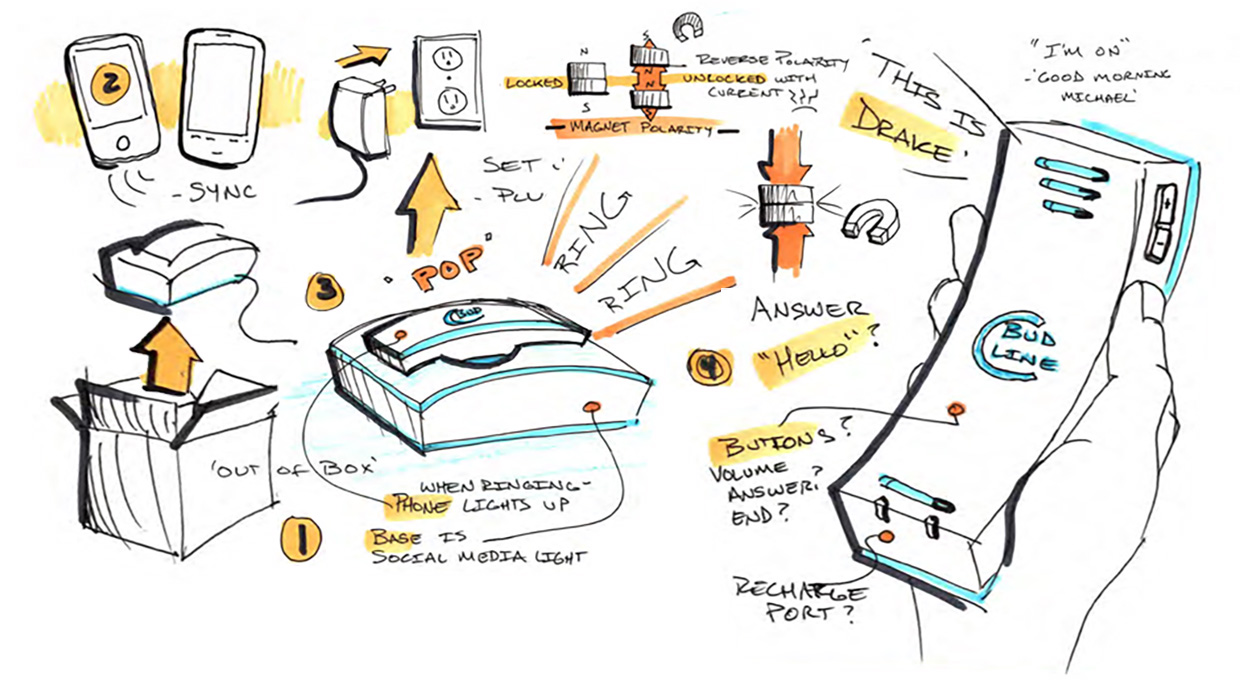 2
- SYNC
N
S
LOCKED
S
N
N
REVERSE POLARITY
UNLOCKED WITH
CURRENT
- MAGNET POLARITY -
SET :'
- PLU
"THIS IS
DRAKE'
"I'M ON"
- 'GOOD MORNING
MICHAEL'
3
'POP'
RING
RING
BUD
ANSWER
4
"HELLO"?
+
-
BUD
LINE
BUTTONS?
VOLUME
ANSWER?
END?
'OUT OF BOX'
1
WHEN RINGING -
PHONE LIGHTS UP
BASE IS
SOCIAL MEDIA LIGHT
RECHARGE
PORT?